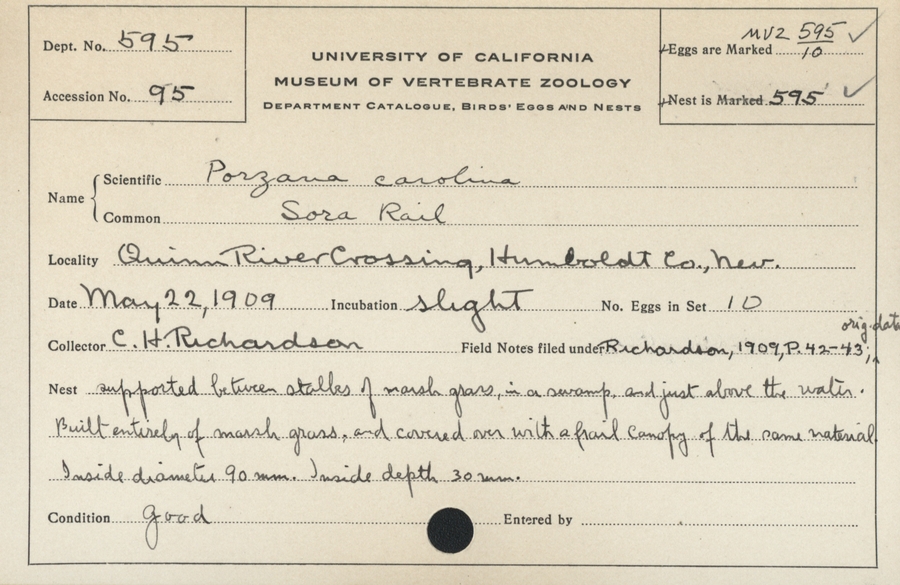 Dept. No. 595
Accession No. 95
UNIVERSITY OF CALIFORNIA
MUSEUM OF VERTEBRATE ZOOLOGY
DEPARTMENT CATALOGUE, BIRDS' EGGS AND NESTS
Eggs are Marked MVZ 595/10 ✓
Nest is Marked 595 ✓
Name { Scientific Porzana carolina
Common Sora Rail
Locality Quinn River Crossing, Humboldt Co., Nev.
Date May 22, 1909 Incubation slight No. Eggs in Set 10
Collector C. H. Richardson Field Notes filed under Richardson, 1909, P. 42-43; orig. data
Nest supported between stalks of marsh grass, in a swamp, and just above the water.
Built entirely of marsh grass, and covered over with a frail canopy of the same material.
Inside diameter 90 mm. Inside depth 30 mm.
Condition good Entered by